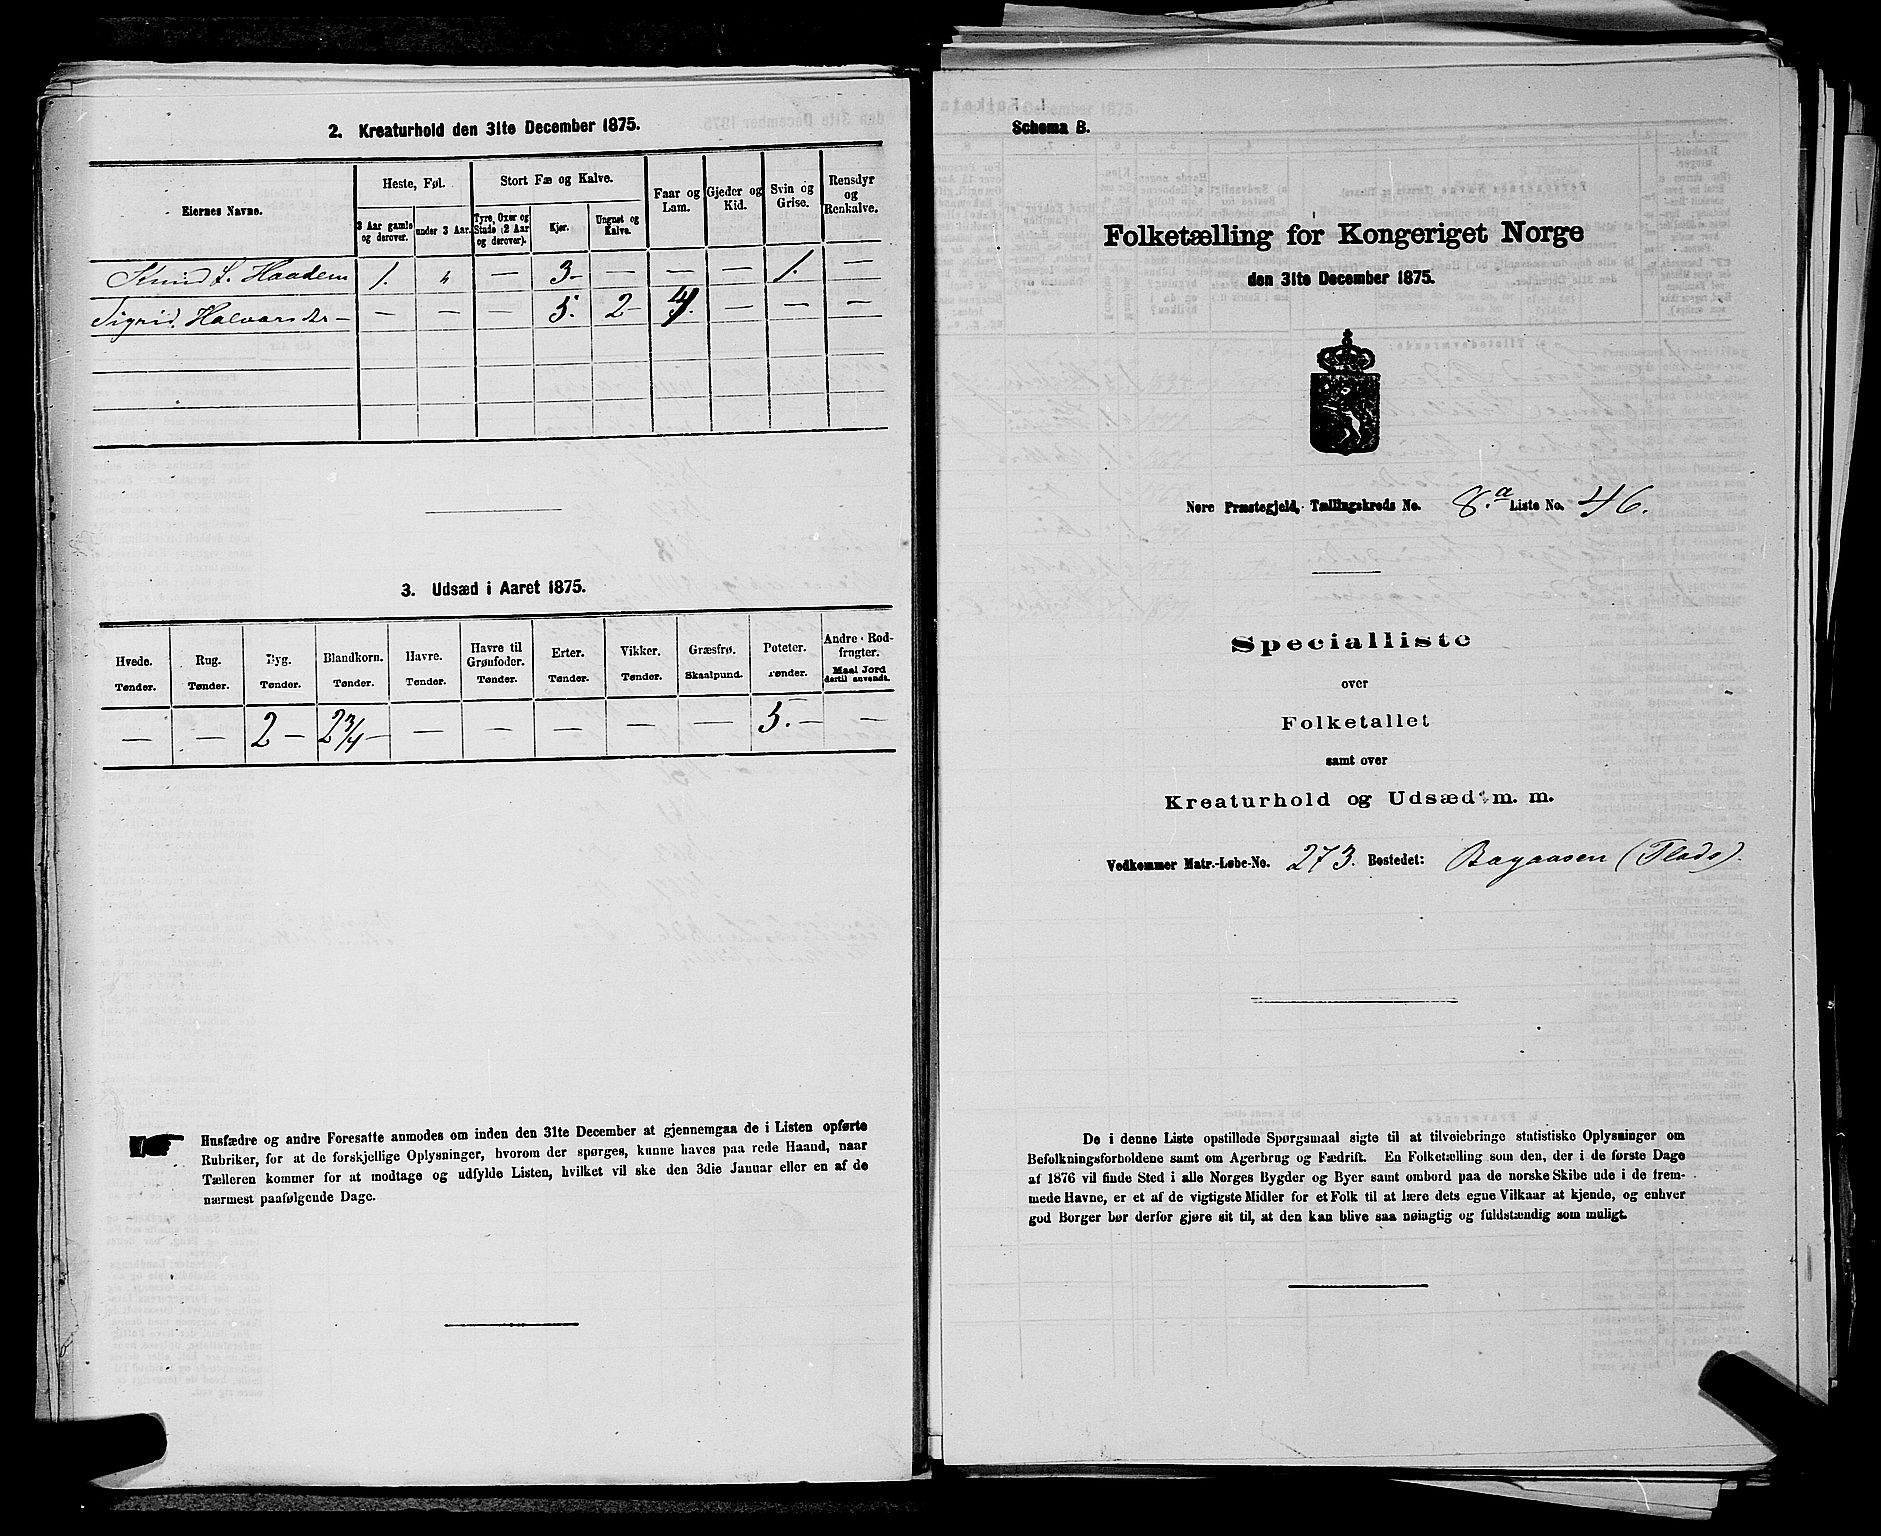 2. Kreaturhold den 31te December 1875.
Eiernes Navne.
Heste, Føl.
Stort Fæ og Kalve.
Faar og Lam.
Gjeder og Kid.
Svin og Grise.
Rensdyr og Renkalve.
3 Aar gamle og derover.
under 3 Aar.
Tyre, Oxer og Stude (2 Aar og derover).
Kjør.
Ungnøt og Kalve.
Knud L. Haadem 1. " — 3 — — — — 1. —
Sigrid Halvorsdtr — — — — 5. 2 — 4. — — —
3. Udsæd i Aaret 1875.
Hvede. Rug. Byg. Blandkorn. Havre. Havre til Grønfoder. Erter. Vikker. Græsfrø. Poteter. Andre Rodfrugter.
Tønder. Tønder. Tønder. Tønder. Tønder. Tønder. Tønder. Tønder. Skaalpund. Tønder. Maal Jord dertil anvendt.
— — 2 — 2 3/4 — — — — — — 5. — —
Husfædre og andre Foresatte anmodes om inden den 31te December at gjennemgaa de i Listen opførte
Rubriker, for at de forskjellige Oplysninger, hvorom der spørges, kunne haves paa rede Haand, naar
Tælleren kommer for at modtage og udfylde Listen, hvilket vil ske den 3die Januar eller en af de
nærmest paafølgende Dage.
Schema B.
Folketælling for Kongeriget Norge
den 31te December 1875.
Nore Præstegjeld, Tællingskreds No. 8.a Liste No. 46.
Specialliste
over
Folketallet
samt over
Kreaturhold og Udsæd m. m.
Vedkommer Matr.-Løbe-No. 273. Bostedet: Bagaasen (Plads).
De i denne Liste opstillede Spørgsmaal sigte til at tilveiebringe statistiske Oplysninger om
Befolkningsforholdene samt om Agerbrug og Fædrift. En Folketælling som den, der i de første Dage
af 1876 vil finde Sted i alle Norges Bygder og Byer samt ombord paa de norske Skibe ude i de frem-
mede Havne, er et af de vigtigste Midler for et Folk til at lære dets egne Vilkaar at kjende, og enhver
god Borger bør derfor gjøre sit til, at den kan blive saa nøiagtig og fuldstændig som muligt.